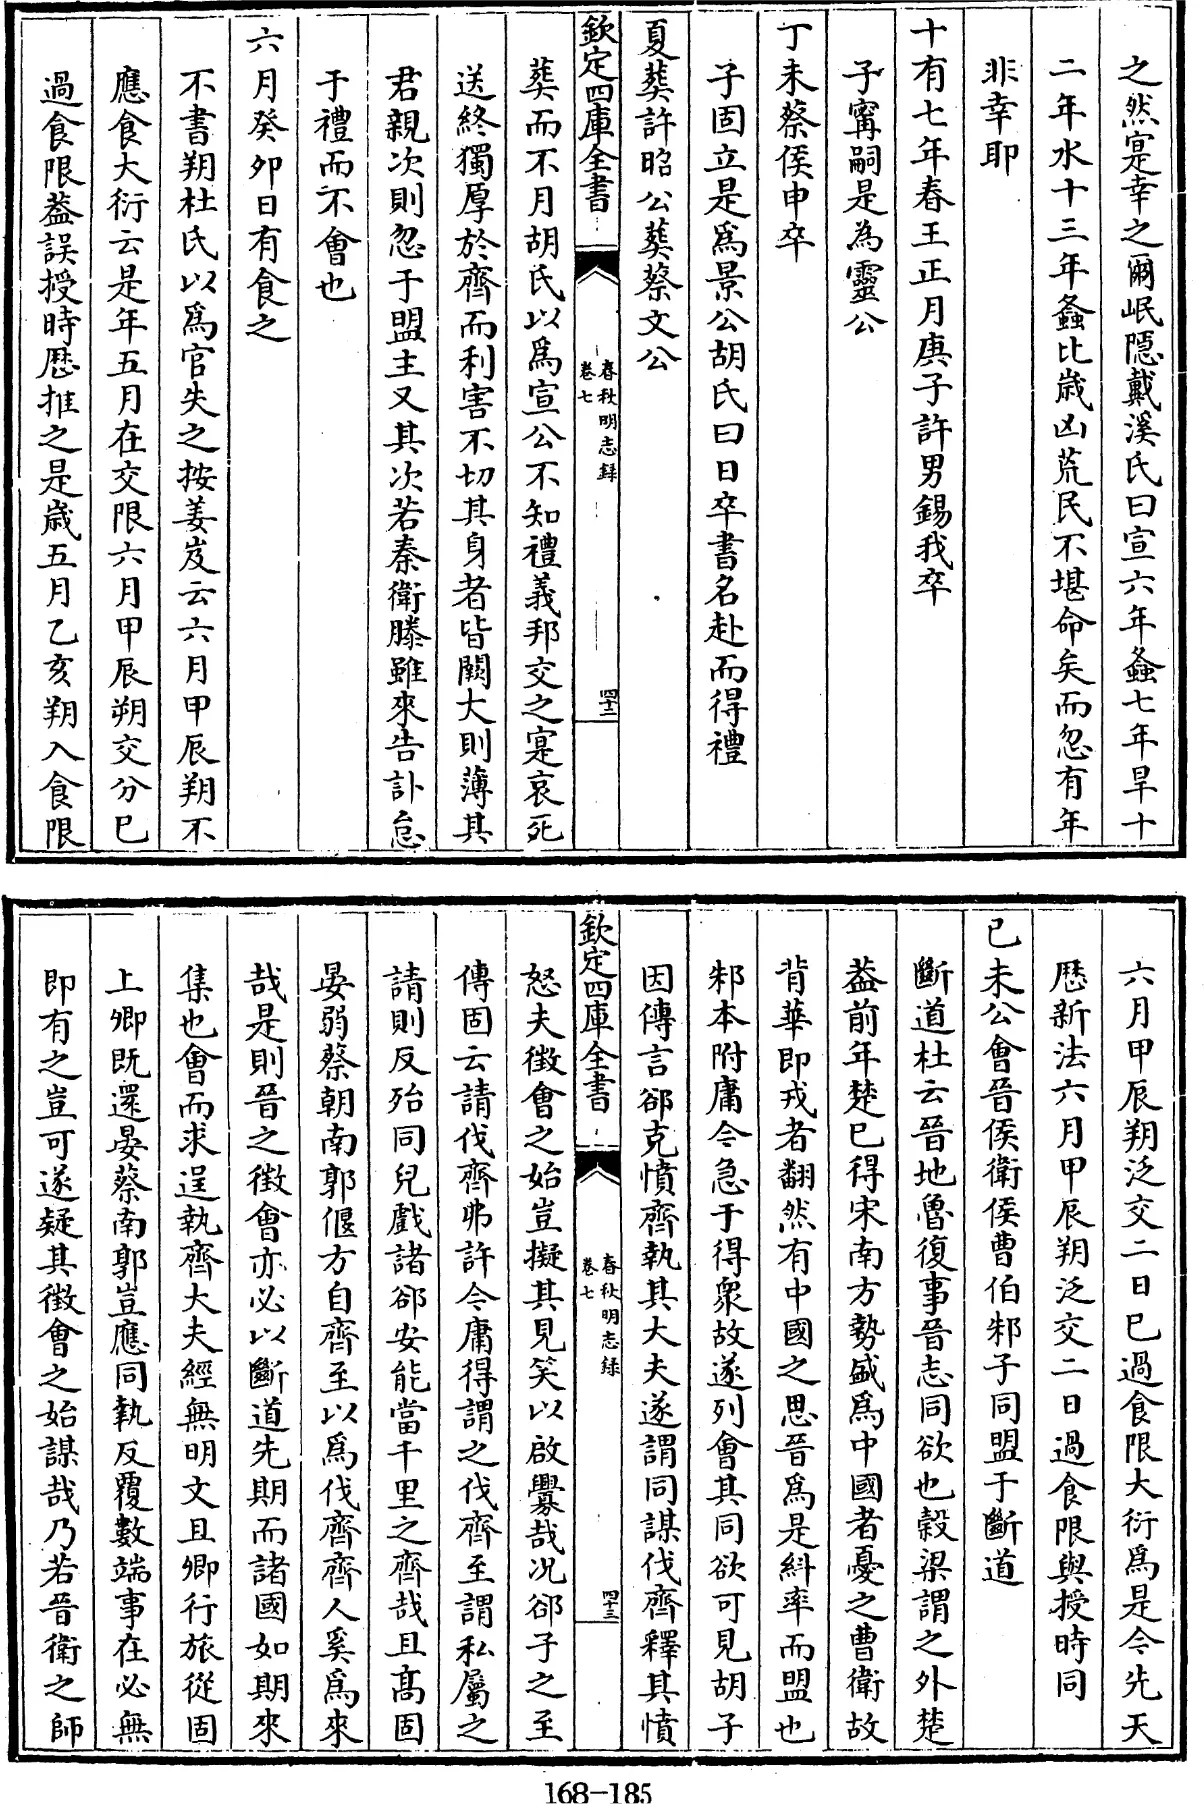 之然寔幸之爾岷隠戴溪氏曰宣六年螽七年旱十
二年水十三年螽比歳凶荒民不堪命矣而忽有年
非幸耶
十有七年春王正月庚子許男錫我卒
子甯嗣是為靈公
丁未蔡侯申卒
子固立是爲景公胡氏曰日卒書名赴而得禮
夏葬許昭公葬蔡文公
欽定四庫全書
春秋明志録
卷七
四十二
葬而不月胡氏以爲宣公不知禮義邦交之寔哀死
送終獨厚於齊而利害不切其身者皆闕大則薄其
君親次則忽于盟主又其次若秦衛滕雖來告訃怠
于禮而不會也
六月癸卯日有食之
不書朔杜氏以爲官失之按姜岌云六月甲辰朔不
應食大衍云是年五月在交限六月甲辰朔交分已
過食限葢誤授時厯推之是歳五月乙亥朔入食限
六月甲辰朔泛交二日已過食限大衍爲是今先天
厯新法六月甲辰朔泛交二日過食限與授時同
已未公會晉侯衛侯曹伯邾子同盟于斷道
斷道杜云晉地魯復事晉志同欲也榖梁謂之外楚
葢前年楚已得宋南方勢盛爲中國者憂之曹衛故
背華即戎者翻然有中國之思晉爲是糾率而盟也
邾本附庸今急于得衆故遂列會其同欲可見胡子
因傳言郤克憤齊執其大夫遂謂同謀伐齊釋其憤
欽定四庫全書
春秋明志録
卷七
四十三
怒夫徵會之始豈擬其見笑以啟釁哉况郤子之至
傳固云請伐齊弗許今庸得謂之伐齊至謂私屬之
請則反殆同兒戲諸郤安能當千里之齊哉且髙固
晏弱蔡朝南郭偃方自齊至以爲伐齊齊人奚爲來
哉是則晉之徴會亦必以斷道先期而諸國如期來
集也會而求逞執齊大夫經無明文且卿行旅從固
上卿既還晏蔡南郭豈應同執反覆數端事在必無
即有之豈可遂疑其徴會之始謀哉乃若晉衛之師
168-185